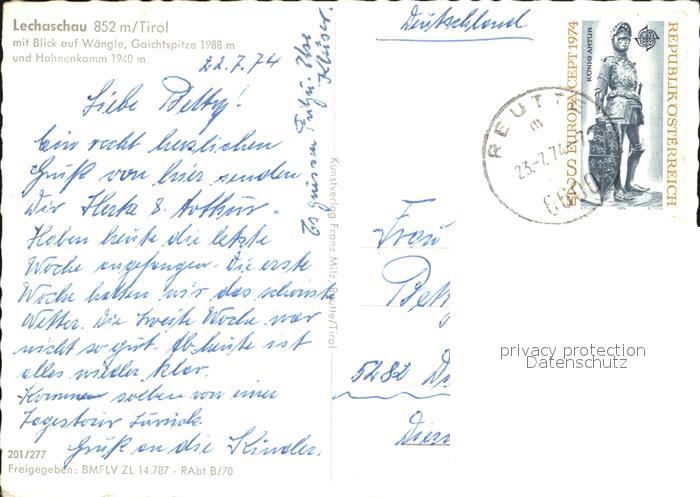 Lechaschau 852 m/Tirol
mit Blick auf Wängle, Gaichtspitze 1988 m
und Hahnenkamm 1940 m
22.7.74
Liebe Betty!
Ein recht herzlichen
Gruß von hier senden
Dir Herta & Arthur.
Haben heute die letzte
Woche angefangen. Die erste
Woche hatten wir das schönste
Wetter. Die zweite Woche war
nicht so gut. Ab heute ist
alles wieder klar.
Kommen soeben von einer
Tagestour zurück.
Gruß an die Kinder.
Es grüssen
201/277
Freigegeben: BMFLV ZL 14.787 - RAbt B/70
Kunstverlag Franz Milz, Reutte/Tirol
Deutschland
Frau
Bett
5282
REUTTE
23.-7.74
6600
EUROPA CEPT 1974
KÖNIG ARTUR
REPUBLIK ÖSTERREICH
privacy protection
Datenschutz